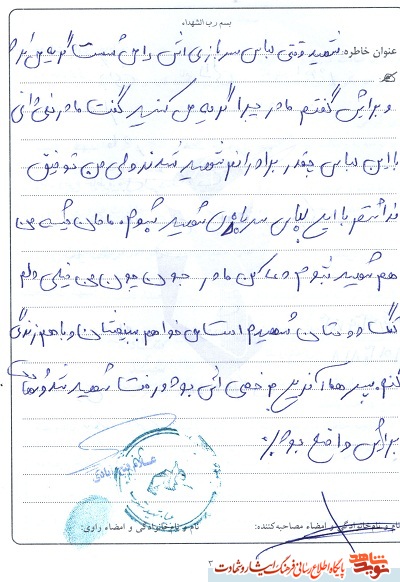 بسم رب الشهداء
عنوان خاطره: شهید وقتی لباس سربازی اش را می شست گریه می کرد
و برایش گفتم مادر چرا گریه می کنید گفت مادر نمی دانی
با این لباس چقدر برادرانم شهید شدند ولی من توفیق
نداشتم با این لباس سربازی شهید شوم. مامان میشه من
هم شهید شوم دعا کن مادر چون من خیلی دلم
تنگ دوستان شهیدم است می خواهم ببینمشان و با هم زندگی
کنیم. پسرم آخرین مرخصی اش بود و رفت شهید شد
برایش واضح بود.
نام و نام خانوادگی و امضاء مصاحبه کننده:
نام و نام خانوادگی و امضاء راوی:
۳
نوید شاهد
پایگاه اطلاع رسانی فرهنگ ایثار و شهادت